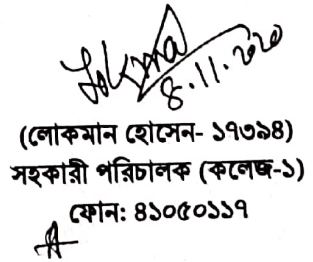 ৪.১১.২০২০
(লোকমান হোসেন- ১৭৩৯৪)
সহকারী পরিচালক (কলেজ-১)
ফোন: ৪১০৫০১১৭